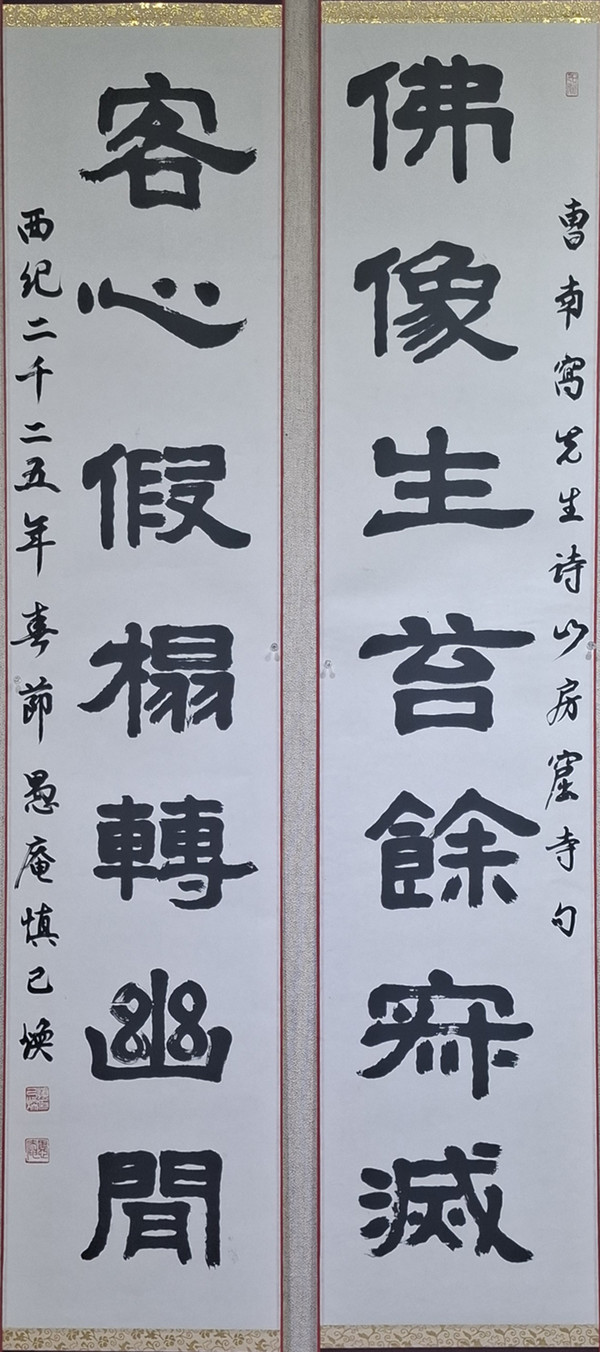 曺南先生詩山房窟寺句
佛像生苔餘寂滅
客心假榻轉幽間
西紀二千二五年春節愚庵慎己煥